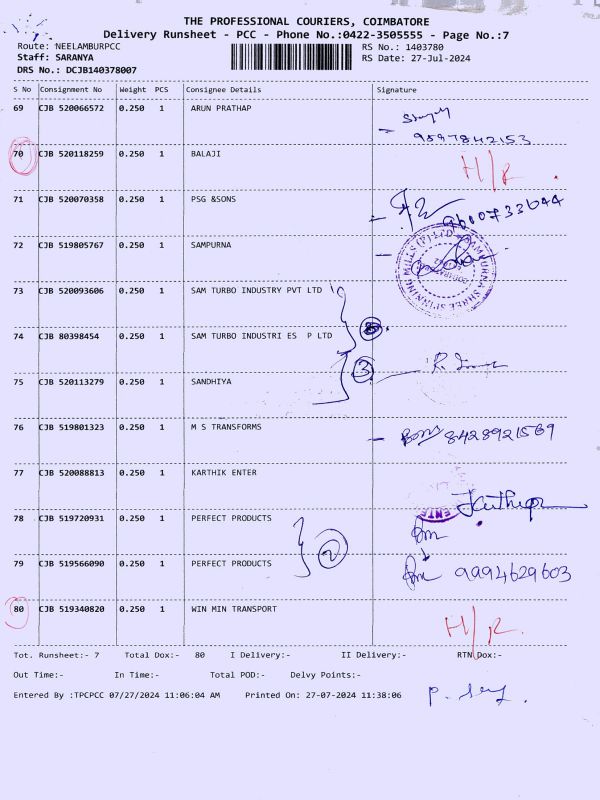 THE PROFESSIONAL COURIERS, COIMBATORE
Delivery Runsheet - PCC - Phone No.:0422-3505555 - Page No.:7
Route: NEELAMBURPCC RS No.: 1403780
Staff: SARANYA RS Date: 27-Jul-2024
DRS No.: DCJB140378007
S No Consignment No Weight PCS Consignee Details Signature
69 CJB 520066572 0.250 1 ARUN PRATHAP
9597842153
70 CJB 520118259 0.250 1 BALAJI H/R.
71 CJB 520070358 0.250 1 PSG &SONS
72 CJB 519805767 0.250 1 SAMPURNA
73 CJB 520093606 0.250 1 SAM TURBO INDUSTRY PVT LTD
74 CJB 80398454 0.250 1 SAM TURBO INDUSTRI ES P LTD
3
75 CJB 520113279 0.250 1 SANDHIYA
76 CJB 519801323 0.250 1 M S TRANSFORMS 8428921569
77 CJB 520088813 0.250 1 KARTHIK ENTER
78 CJB 519720931 0.250 1 PERFECT PRODUCTS
2
79 CJB 519566090 0.250 1 PERFECT PRODUCTS 9994629603
80 CJB 519340820 0.250 1 WIN MIN TRANSPORT H/R.
Tot. Runsheet:- 7 Total Dox:- 80 I Delivery:- II Delivery:- RTN Dox:-
Out Time:- In Time:- Total POD:- Delvy Points:-
Entered By :TPCPCC 07/27/2024 11:06:04 AM Printed On: 27-07-2024 11:38:06